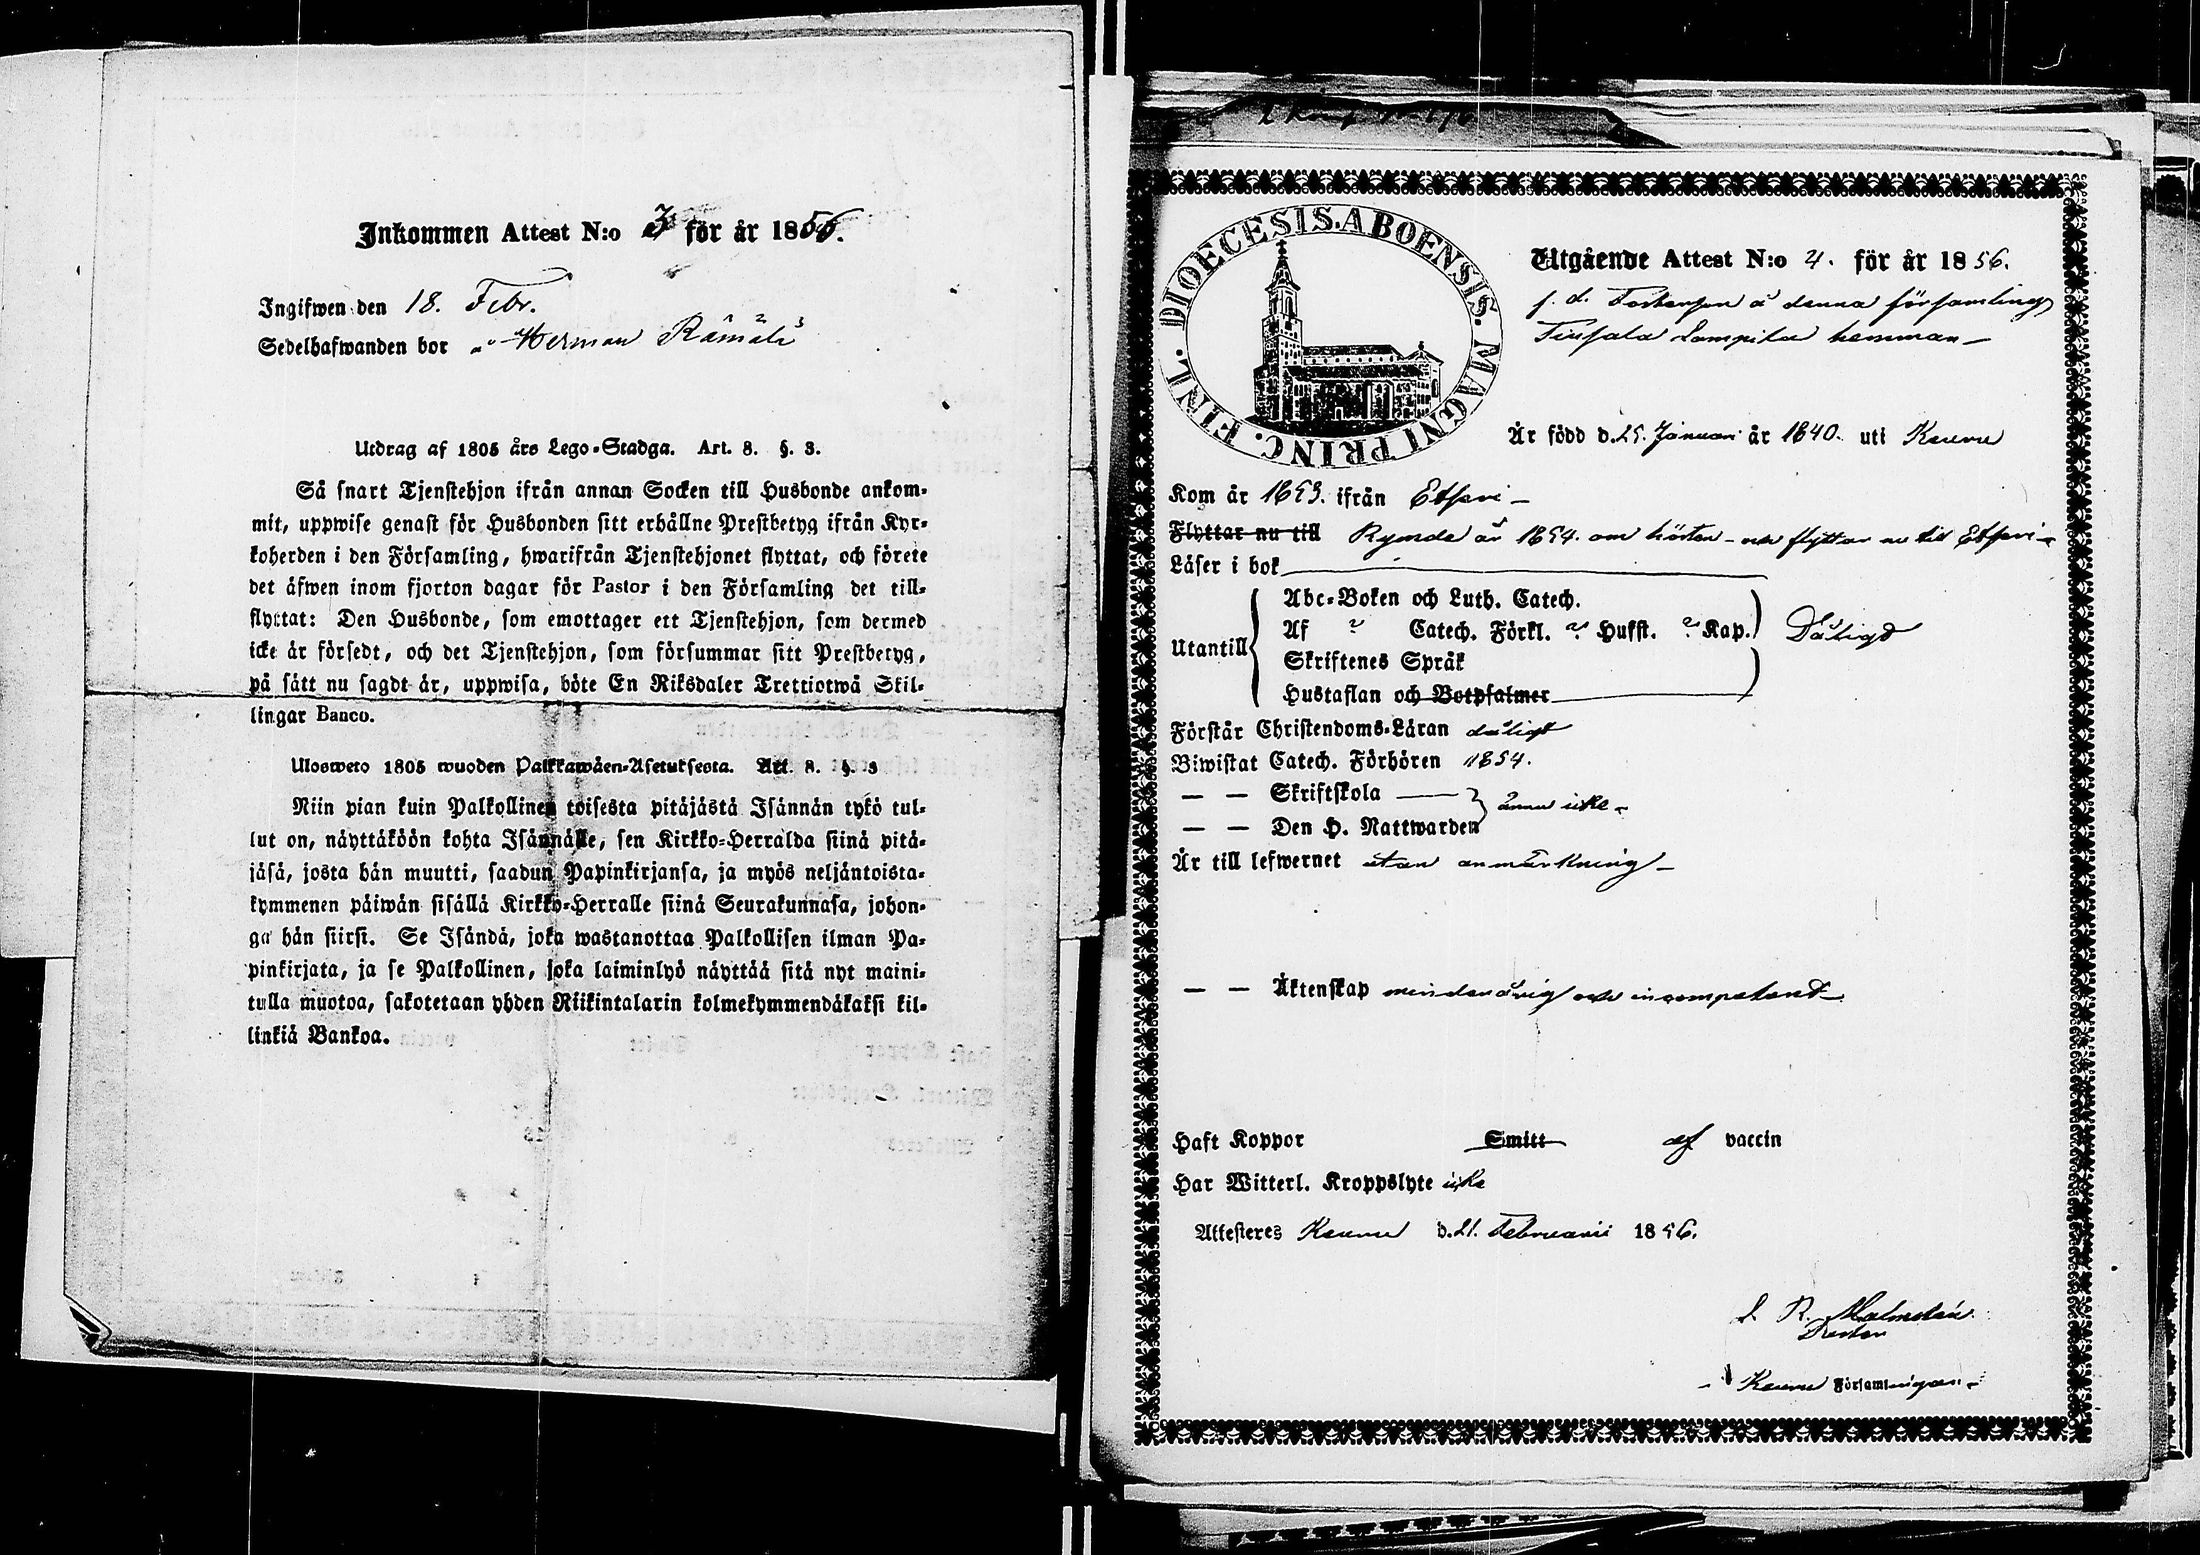 Inkommen Attest N:o 3 för år 1856.
Ingifwen den 18. Febr.
Sedelhafwanden bor Herman
Utdrag af 1805 års Lego-Stadga. Art. 8. §. 3.
Så snart Tjenstehjon ifrån annan Socken till Husbonde ankom-
mit, uppwise genast för Husbonden sitt erhållne Prestbetyg ifrån Kyr-
koherden i den Församling, hwarifrån Tjenstehjonet flyttat, och förete
det äfwen inom fjorton dagar för Pastor i den Församling det till-
flyttat: Den Husbonde, som emottager ett Tjenstehjon, som dermed
icke är försedt, och det Tjenstehjon, som försummar sitt Prestbetyg,
på sätt nu sagdt är, uppwisa, böte En Riksdaler Trettiotwå Skil-
lingar Banco.
Ulosweto 1805 wuoden Palkkawäen-Asetuksesta. Art. 8. §. 3
Niin pian kuin Palkollinen toisesta pitäjästä Isännän tykö tul-
lut on, näyttäköön kohta Isännälle, sen Kirkko-Herralda siinä pitä-
jäsä, josta hän muutti, saadun Papinkirjansa, ja myös neljäntoista-
kymmenen päiwän sisällä Kirkko-Herralle siinä Seurakunnasa, johon-
ga hän siirsi. Se Isändä, joka wastanottaa Palkollisen ilman Pa-
pinkirjata, ja se Palkollinen, joka laiminlyö näyttää sitä nyt maini-
tulla muotoa, sakotetaan yhden Riikintalarin kolmekymmendäkaksi kil-
linkiä Bankoa.
DIOECESIS. ABOENSIS. MAGNI PRINC. FINL.
Utgående Attest N:o 4. för år 1856.
f. d. å denna församlings
Lampila hemman
Är född d. 25. Januari år 1840. uti Keuru
Kom år 1853. ifrån Etseri
Flyttar nu till år 1854. om hösten och flyttar nu till Etseri
Läser i bok
Abc-Boken och Luth. Catech.
Af Catech. Förkl. Husst. Kap. Dåligt
Utantill
Skriftenes Språk
Hustaflan och Botpsalmer
Förstår Christendoms-Läran dåligt
Biwistat Catech. Förhören 1854.
— — Skriftskola — ännu icke
— — Den H. Nattwarden
Är till lefwernet utan anmärkning
— — Äktenskap minderårig och incompetent
Haft Koppor Smitt af vaccin
Har Witterl. Kroppslyte icke
Attesteres Keuru d. 21. Februarii 1856.
Malmstén
Keuru Församlingen